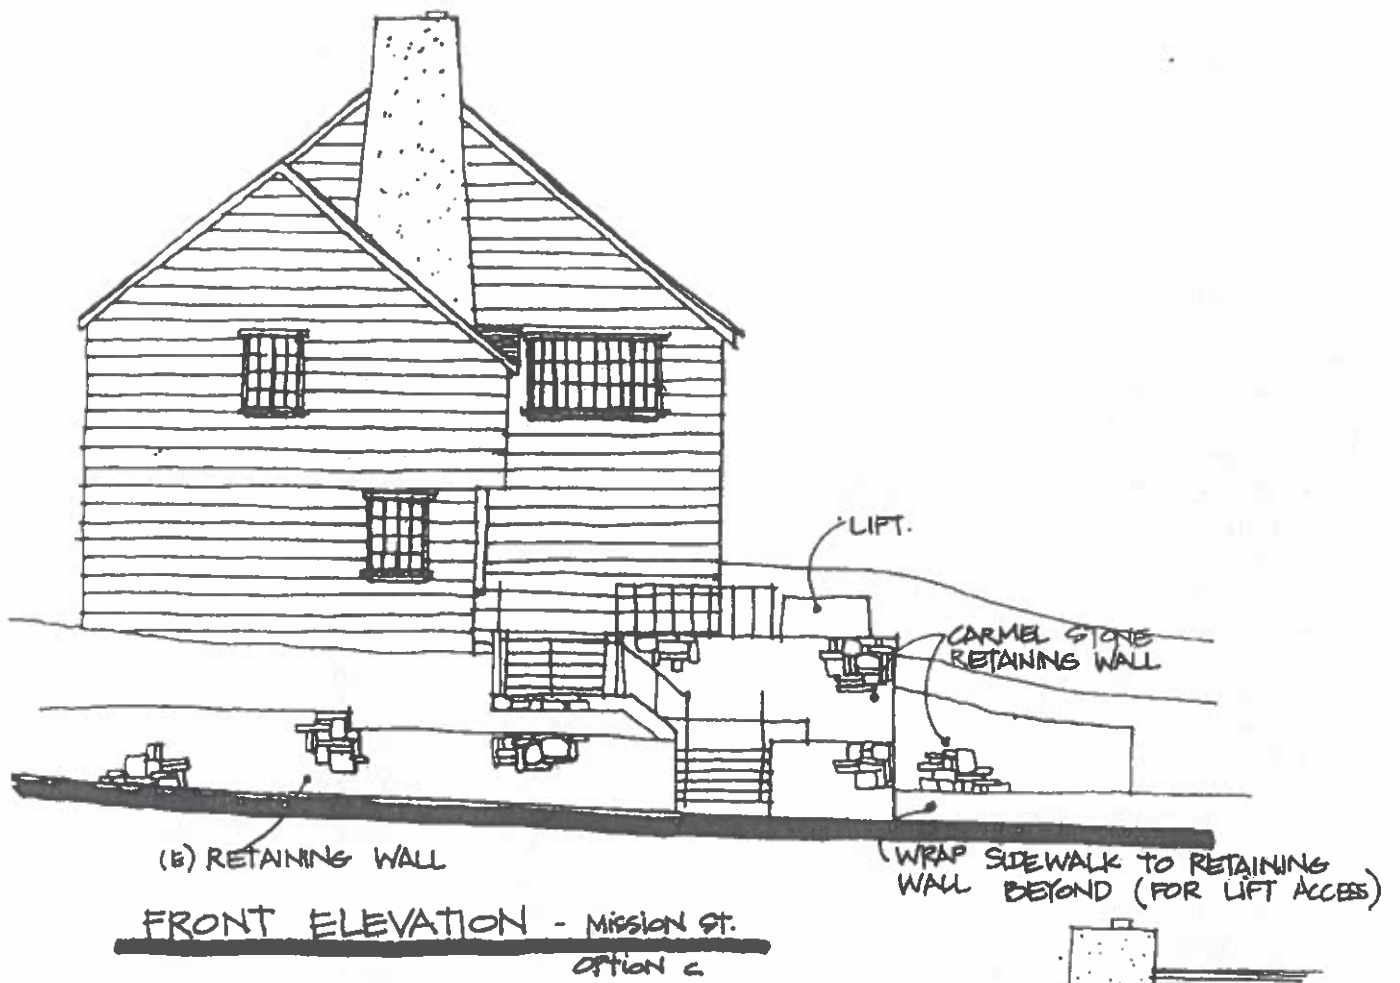 LIFT.
CARMEL STONE
RETAINING WALL
(E) RETAINING WALL
WRAP SIDEWALK TO RETAINING
WALL BEYOND (FOR LIFT ACCESS)
FRONT ELEVATION - MISSION ST.
OPTION C